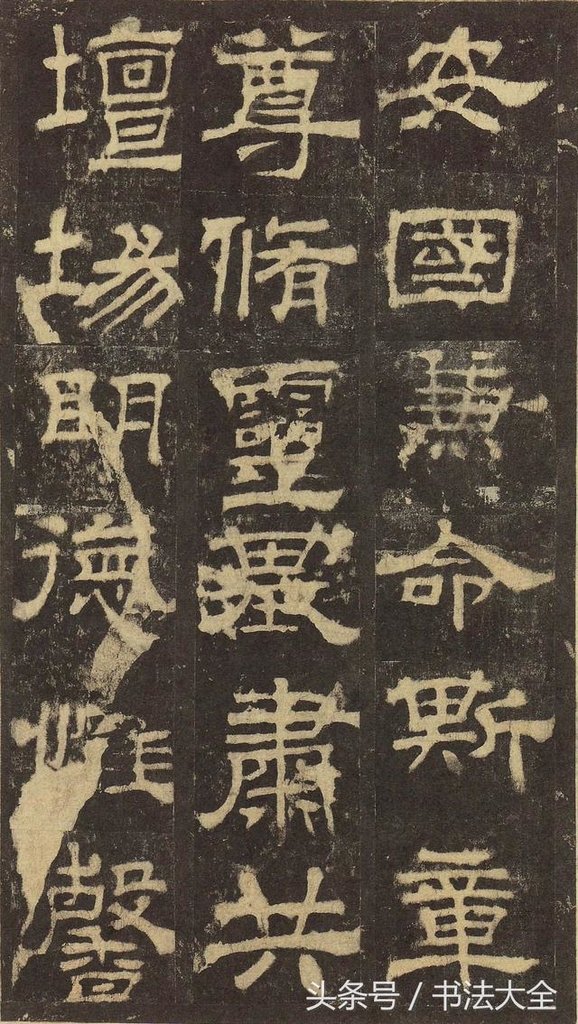 安國兼命斯章
尊脩靈基肅共
壇場明德惟馨
头条号 / 书法大全